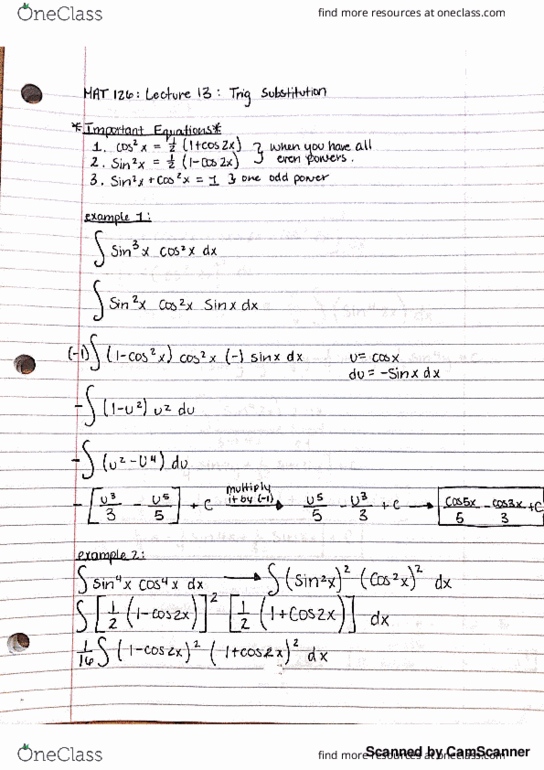 OneClass find more resources at oneclass.com
MAT 126: Lecture 13: Trig Substitution
*Important Equations*
1. cos²x = 1/2 (1+cos2x) } when you have all
2. Sin²x = 1/2 (1-Cos2x) } even powers.
3. Sin²x + Cos²x = 1 } one odd power
example 1:
∫ Sin³x cos²x dx
∫ Sin²x Cos²x Sinx dx
(-1)∫ (1-cos²x) cos²x (-) sinx dx u= cosx
du = -Sinx dx
-∫ (1-u²) u² du
-∫ (u² - u⁴) du
-[u³/3 - u⁵/5] + C multiply it by (-1) → u⁵/5 - u³/3 + C → cos5x/5 - cos3x/3 + C
example 2:
∫ sin⁴x cos⁴x dx → ∫ (sin²x)² (cos²x)² dx
∫ [1/2 (1-cos2x)]² [1/2 (1+cos2x)] dx
1/16 ∫ (1-cos2x)² (1+cos2x)² dx
OneClass find more resources at oneclass.com
Scanned by CamScanner